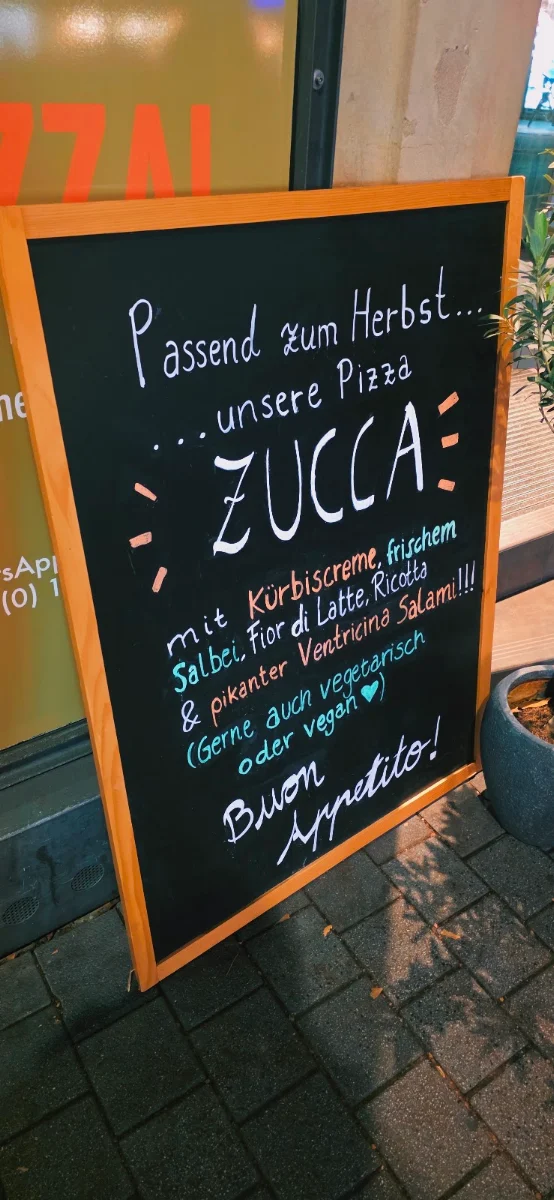 ZZA!
Passend zum Herbst...
...unsere Pizza
ZUCCA
mit Kürbiscreme, frischem
Salbei, Fior di Latte, Ricotta
& pikanter Ventricina Salami!!!
(Gerne auch vegetarisch
oder vegan ♥)
Buon
Appetito!
sApp
(0) 1